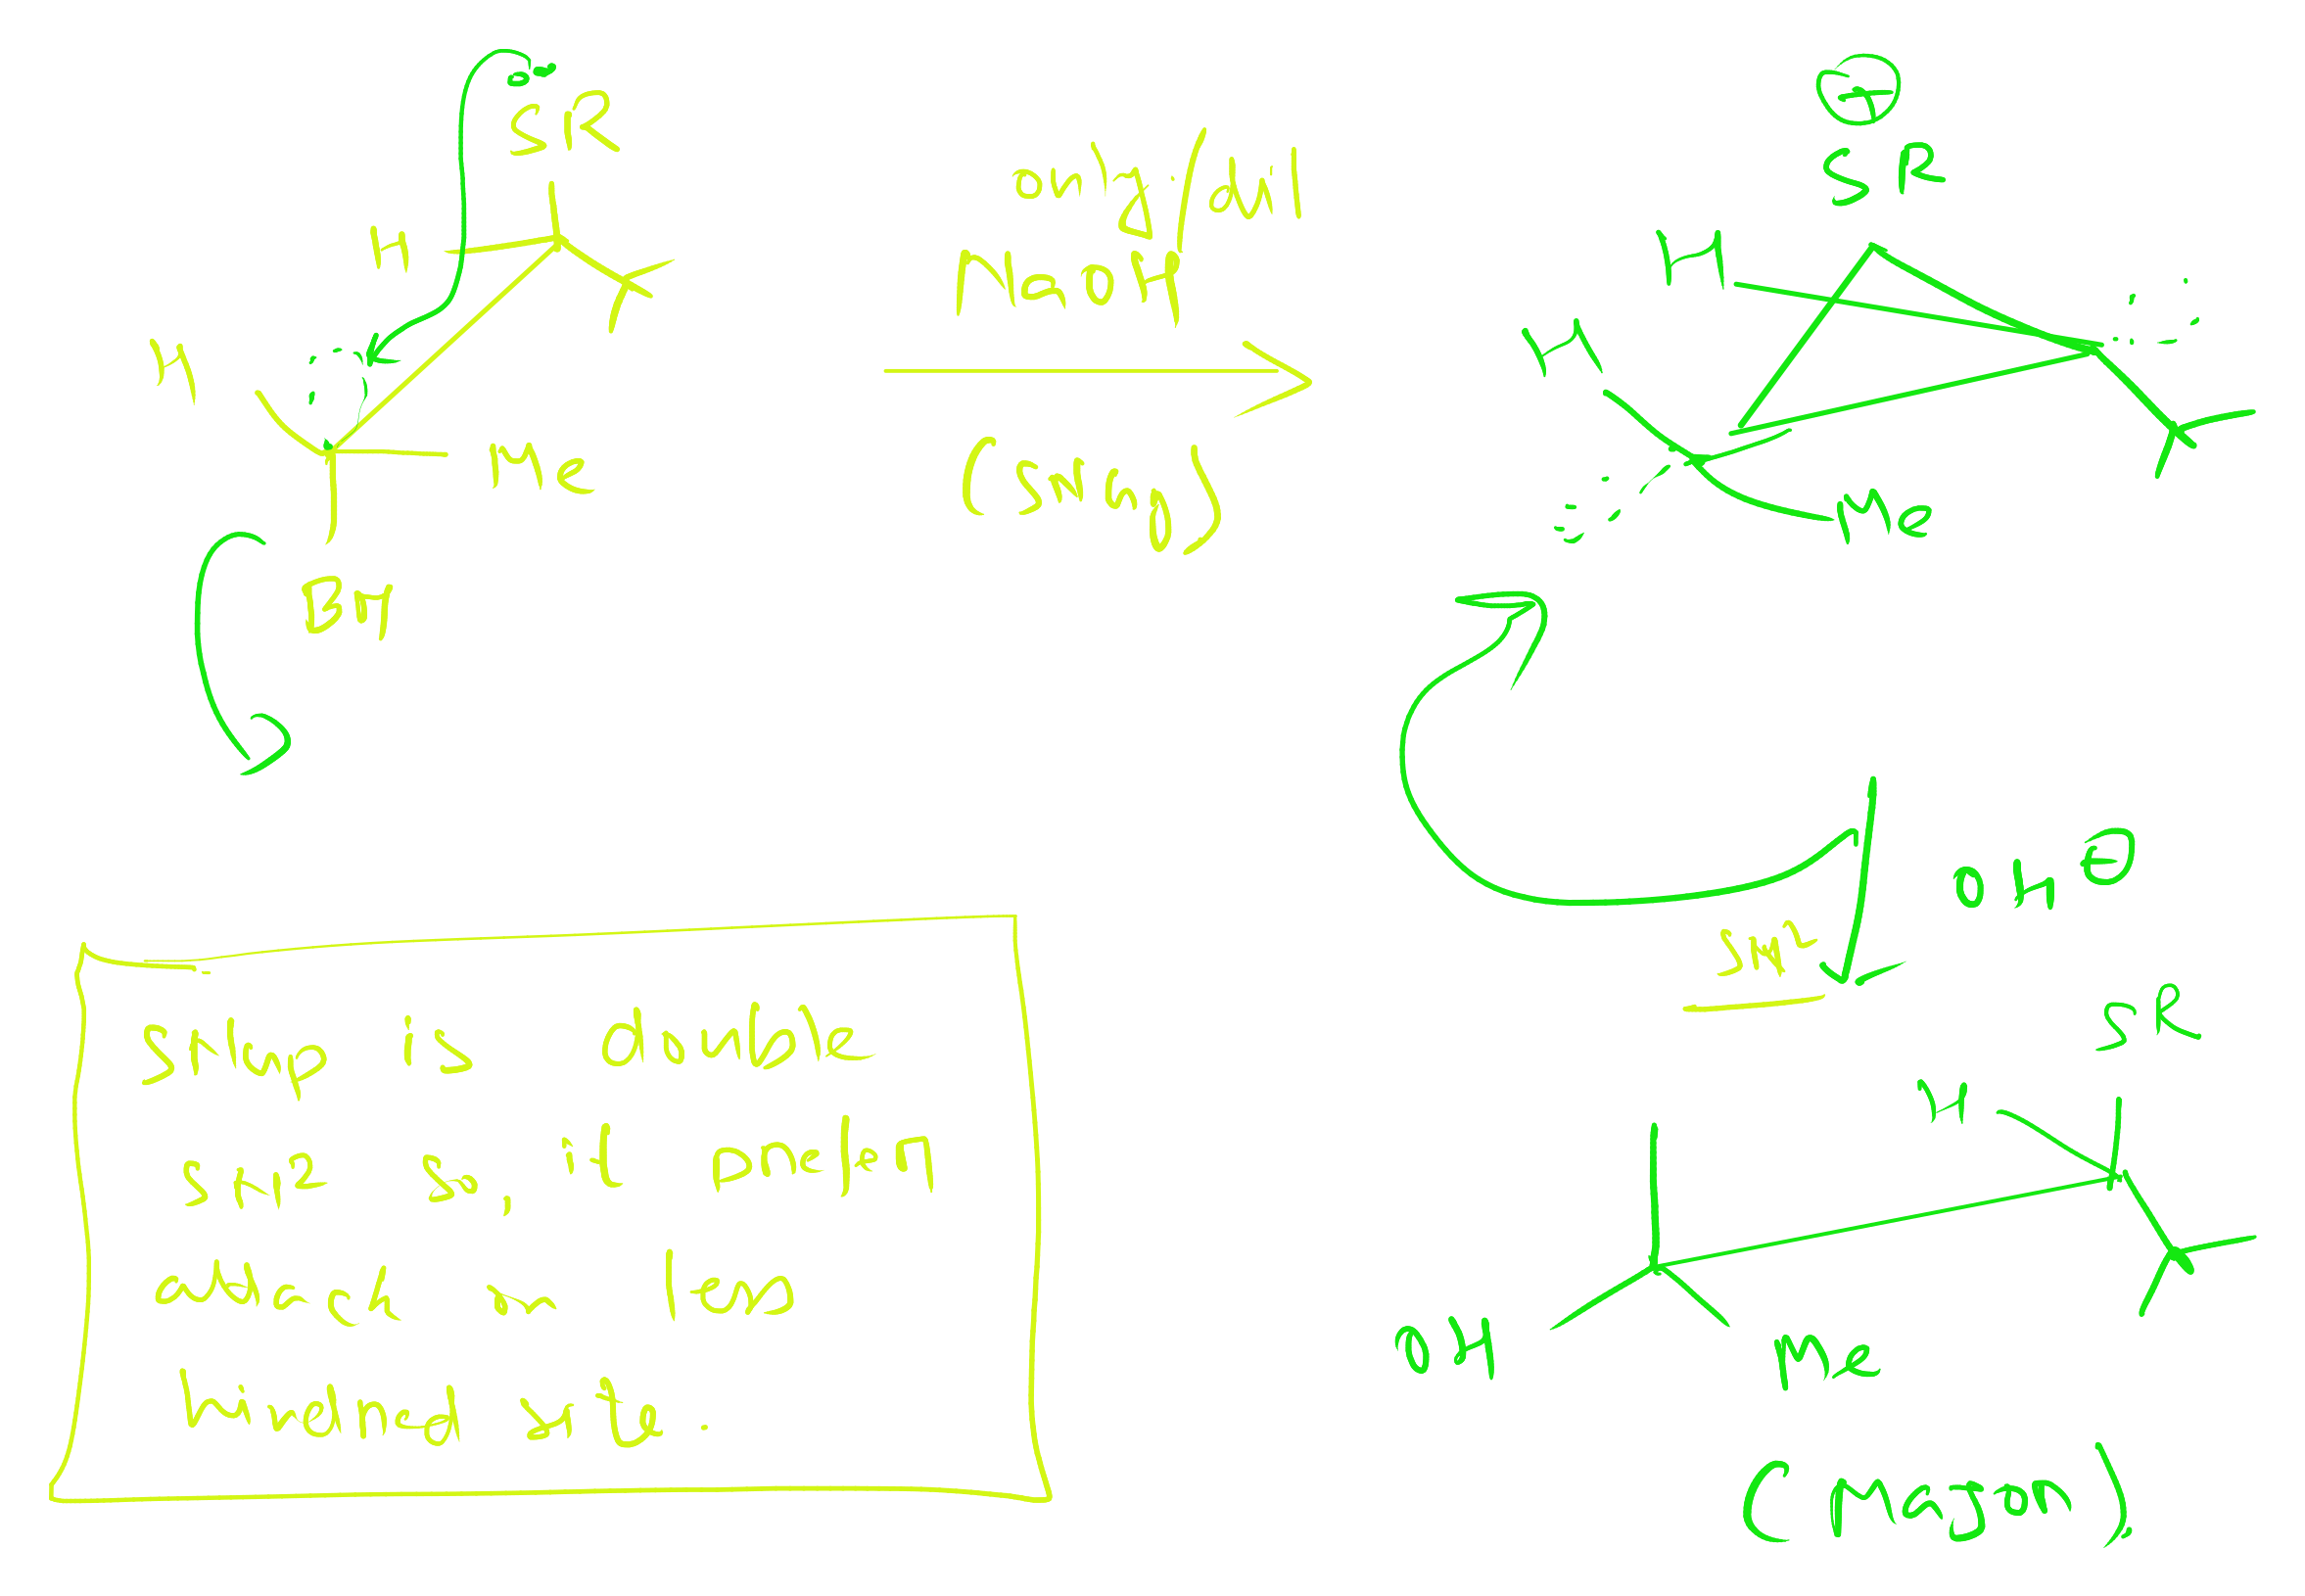 SR
H
H
Me
Br
only/dil
NaOH
(SNNGP)
⊕
SR
H
H
Me
OH⊖
SN2
SR
H
OH
Me
(Major).
SNNGP is double
SN2 so, it prefer
attack on less
hindred site.